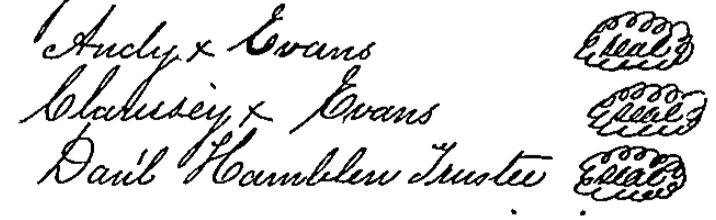 Andy x Evans Seal
Clarissey x Evans Seal
Dan'l Hamblen Trustee Seal